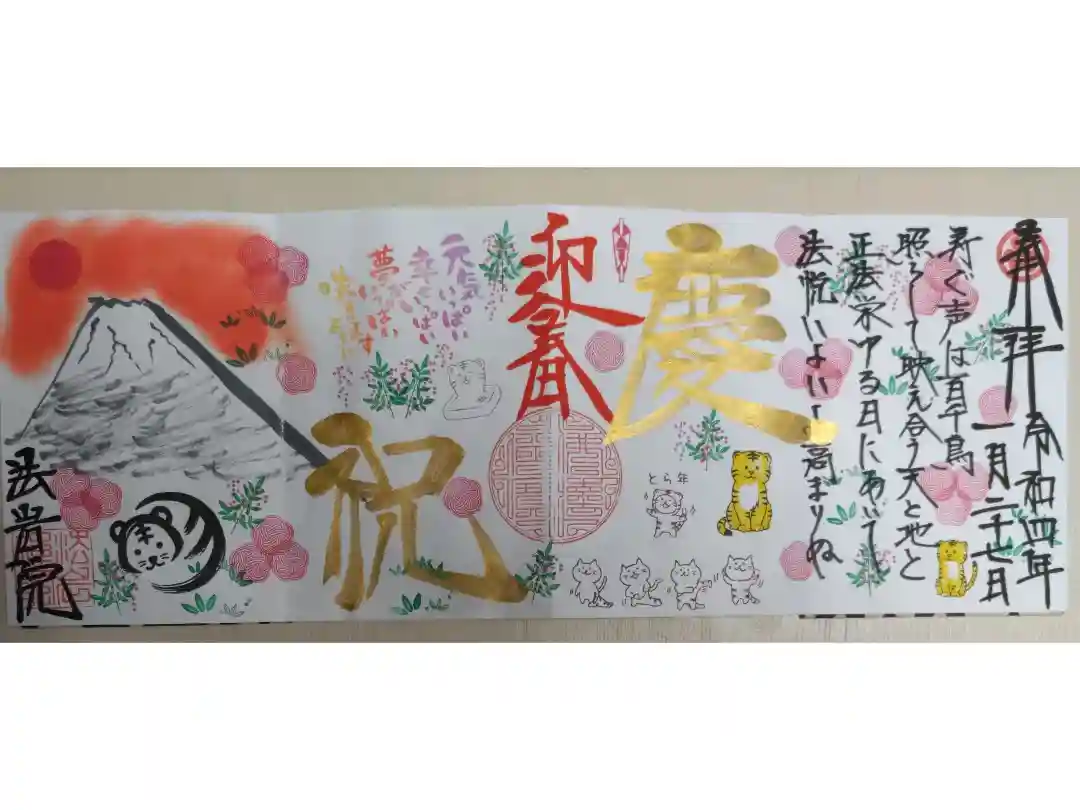 奉拝
令和四年
一月二十七日
寿ぐ声は百千鳥
照らして映え合う天と地と
正法栄ゆる日にあいて
法悦いよいよ高まりぬ
慶
迎春
とら年
元気いっぱい
幸せいっぱい
夢いっぱい
祝
法常院